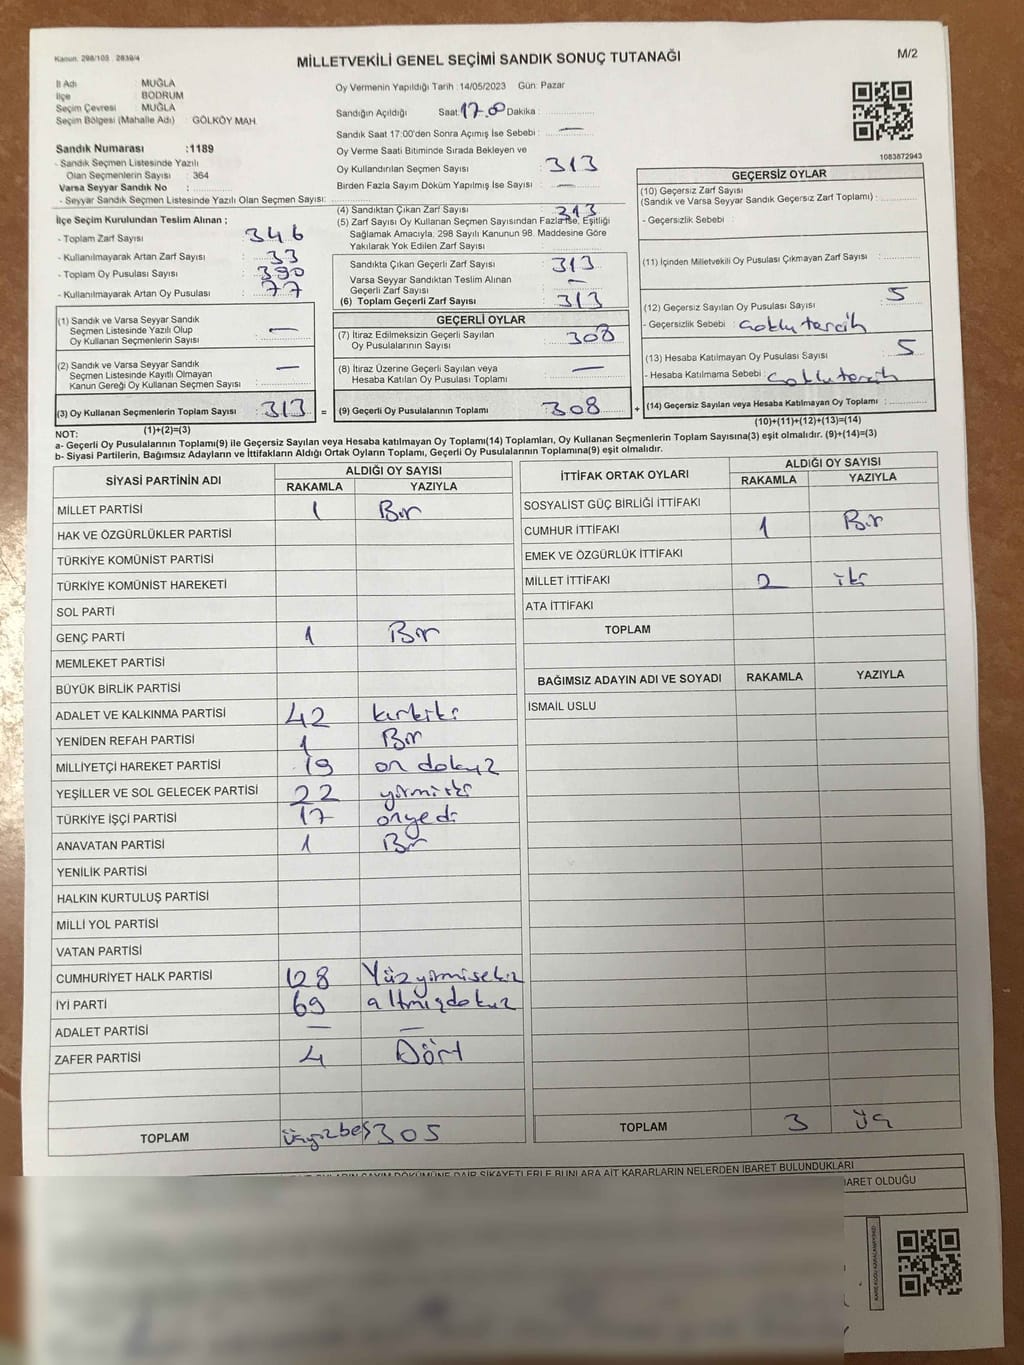 Kanun: 298/105 2839/4
MİLLETVEKİLİ GENEL SEÇİMİ SANDIK SONUÇ TUTANAĞI
M/2
İl Adı : MUĞLA
İlçe : BODRUM
Seçim Çevresi : MUĞLA
Seçim Bölgesi (Mahalle Adı) : GÖLKÖY MAH.
Sandık Numarası :1189
- Sandık Seçmen Listesinde Yazılı
Olan Seçmenlerin Sayısı : 364
Varsa Seyyar Sandık No :
- Seyyar Sandık Seçmen Listesinde Yazılı Olan Seçmen Sayısı:
İlçe Seçim Kurulundan Teslim Alınan ;
- Toplam Zarf Sayısı : 346
- Kullanılmayarak Artan Zarf Sayısı : 33
- Toplam Oy Pusulası Sayısı : 390
- Kullanılmayarak Artan Oy Pusulası : 77
(1) Sandık ve Varsa Seyyar Sandık
Seçmen Listesinde Yazılı Olup
Oy Kullanan Seçmenlerin Sayısı : —
(2) Sandık ve Varsa Seyyar Sandık
Seçmen Listesinde Kayıtlı Olmayan
Kanun Gereği Oy Kullanan Seçmen Sayısı : —
(3) Oy Kullanan Seçmenlerin Toplam Sayısı : 313 =
(1)+(2)=(3)
Oy Vermenin Yapıldığı Tarih : 14/05/2023 Gün: Pazar
Sandığın Açıldığı Saat: 17.00 Dakika :
Sandık Saat 17:00'den Sonra Açımış İse Sebebi : —
Oy Verme Saati Bitiminde Sırada Bekleyen ve
Oy Kullandırılan Seçmen Sayısı : 313
Birden Fazla Sayım Döküm Yapılmış İse Sayısı : —
(4) Sandıktan Çıkan Zarf Sayısı : 313
(5) Zarf Sayısı Oy Kullanan Seçmen Sayısından Fazla İse, Eşitliği
Sağlamak Amacıyla, 298 Sayılı Kanunun 98. Maddesine Göre
Yakılarak Yok Edilen Zarf Sayısı :
Sandıkta Çıkan Geçerli Zarf Sayısı : 313
Varsa Seyyar Sandıktan Teslim Alınan
Geçerli Zarf Sayısı : —
(6) Toplam Geçerli Zarf Sayısı : 313
GEÇERLİ OYLAR
(7) İtiraz Edilmeksizin Geçerli Sayılan
Oy Pusulalarının Sayısı : 308
(8) İtiraz Üzerine Geçerli Sayılan veya
Hesaba Katılan Oy Pusulası Toplamı : —
(9) Geçerli Oy Pusulalarının Toplamı : 308 +
1083872943
GEÇERSİZ OYLAR
(10) Geçersiz Zarf Sayısı
(Sandık ve Varsa Seyyar Sandık Geçersiz Zarf Toplamı) :
- Geçersizlik Sebebi :
(11) İçinden Milletvekili Oy Pusulası Çıkmayan Zarf Sayısı :
(12) Geçersiz Sayılan Oy Pusulası Sayısı : 5
- Geçersizlik Sebebi : Çoklu tercih
(13) Hesaba Katılmayan Oy Pusulası Sayısı : 5
- Hesaba Katılmama Sebebi : Çoklu tercih
(14) Geçersiz Sayılan veya Hesaba Katılmayan Oy Toplamı :
(10)+(11)+(12)+(13)=(14)
NOT:
a- Geçerli Oy Pusulalarının Toplamı(9) ile Geçersiz Sayılan veya Hesaba katılmayan Oy Toplamı(14) Toplamları, Oy Kullanan Seçmenlerin Toplam Sayısına(3) eşit olmalıdır. (9)+(14)=(3)
b- Siyasi Partilerin, Bağımsız Adayların ve İttifakların Aldığı Ortak Oyların Toplamı, Geçerli Oy Pusulalarının Toplamına(9) eşit olmalıdır.
SİYASİ PARTİNİN ADI ALDIĞI OY SAYISI
RAKAMLA YAZIYLA
MİLLET PARTİSİ 1 Bir
HAK VE ÖZGÜRLÜKLER PARTİSİ
TÜRKİYE KOMÜNİST PARTİSİ
TÜRKİYE KOMÜNİST HAREKETİ
SOL PARTİ
GENÇ PARTİ 1 Bir
MEMLEKET PARTİSİ
BÜYÜK BİRLİK PARTİSİ
ADALET VE KALKINMA PARTİSİ 42 kırkiki
YENİDEN REFAH PARTİSİ 1 Bir
MİLLİYETÇİ HAREKET PARTİSİ 19 on dokuz
YEŞİLLER VE SOL GELECEK PARTİSİ 22 yirmiiki
TÜRKİYE İŞÇİ PARTİSİ 17 onyedi
ANAVATAN PARTİSİ 1 Bir
YENİLİK PARTİSİ
HALKIN KURTULUŞ PARTİSİ
MİLLİ YOL PARTİSİ
VATAN PARTİSİ
CUMHURİYET HALK PARTİSİ 128 Yüzyirmisekiz
İYİ PARTİ 69 altmışdokuz
ADALET PARTİSİ — —
ZAFER PARTİSİ 4 Dört
TOPLAM üçyüzbeş 305
İTTİFAK ORTAK OYLARI ALDIĞI OY SAYISI
RAKAMLA YAZIYLA
SOSYALİST GÜÇ BİRLİĞİ İTTİFAKI
CUMHUR İTTİFAKI 1 Bir
EMEK VE ÖZGÜRLÜK İTTİFAKI
MİLLET İTTİFAKI 2 iki
ATA İTTİFAKI
TOPLAM
BAĞIMSIZ ADAYIN ADI VE SOYADI RAKAMLA YAZIYLA
İSMAİL USLU
TOPLAM 3 üç
SAYIM DÖKÜMÜNE DAİR ŞİKAYETLERLE BUNLARA AİT KARARLARIN NELERDEN İBARET BULUNDUKLARI
İBARET OLDUĞU